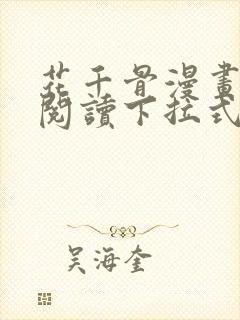 花千骨漫畫
閱讀下拉式
吳海奎